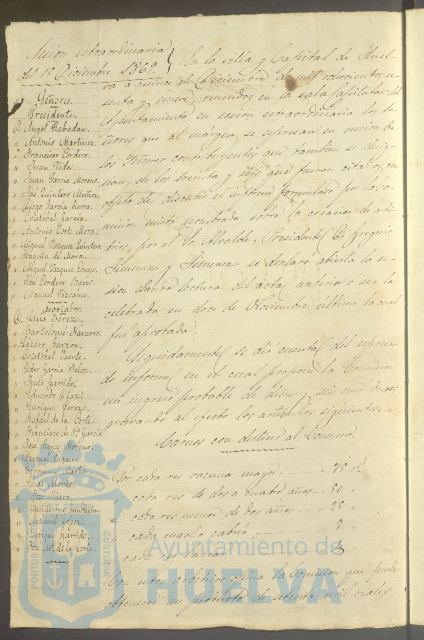 Sesion extraordinaria
del 15 Diciembre 1869.
Señores.
Presidente.
D. Angel Rabadan.
" Antonio Martinez.
" Francisco Cordero.
" Juan
" Juan Garcia Moreno.
" José Quintero Muñoz.
" Diego Garcia
" Cristobal Garcia.
" Antonio de Mora.
" Miguel Vazquez Quintero.
" Joaquin de Mora.
" Miguel Vazquez
" José Cordero
" Manuel Vizcaino.
Asociados.
D. Luis Perez.
" Bartolomé Navarro.
" Lázaro Garzon.
" Cristobal
" Pedro Garcia
" Justo Garrido.
" Eduardo Diaz.
" Enrique Perez.
" Rafael de la Corte.
" Francisco de P. Garcia.
" José Reyes Moreno.
" Martin.
" José
" Guillermo
" Manuel Lopez.
" Enrique Garrido.
" de la Corte.
En la villa y Capital de Huel-
va á quince de Diciembre de mil ochocientos se-
senta y nueve, reunidos en la sala capitular del
Ayuntamiento en sesion extraordinaria los se-
ñores que al margen se espresan en union de
los Señores contribuyentes que tambien se desig-
nan, de los treinta y seis que fueron citados, con
objeto de discutir el informe formulado por la Co-
mision mista nombrada sobre la creacion de arbi-
trios, por el Sr. Alcalde, Presidente, D. Gregorio
Jimenez y Jimenez se declaró abierta la se-
sion dando lectura del acta anterior ó sea la
celebrada en doce de Noviembre último la cual
fué aprobada.
Seguidamente se dió cuenta del espresa-
do informe, en el cual propone la Comision
un ingreso probable de mil duros
gravando al efecto los artículos siguientes.
Carnes con destino al Consumo.
Por cada res vacuna mayor " 75
" cada res de dos á cuatro años " 50 "
" cada res menor de dos años " 25 "
" cada macho cabrio
" cada
Con cuyo arbitrio opina la Comision que puede
obtenerse un producto de setenta mil reales
Ayuntamiento de
HUELVA
PORTUS
CUSTODIA